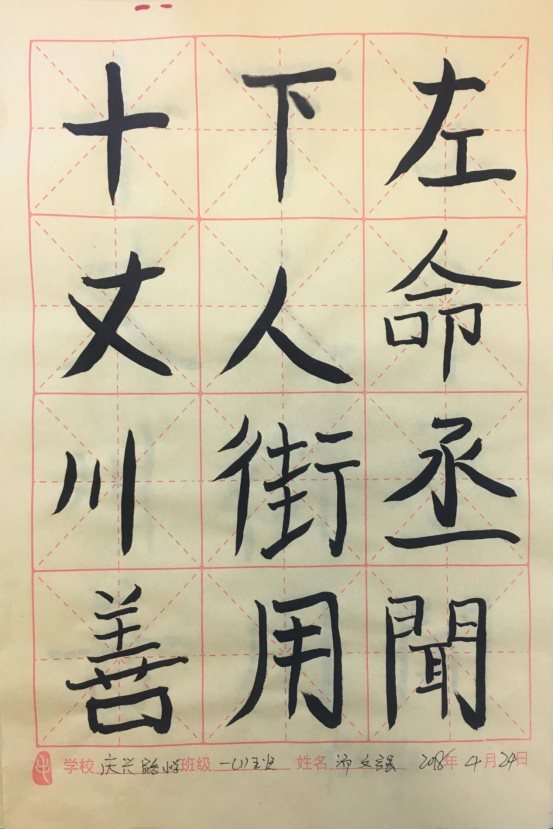 左命丞聞
下人街用
十丈川善
学校 庆兴 班级 一(1)班 姓名 文强 2018年4月24日